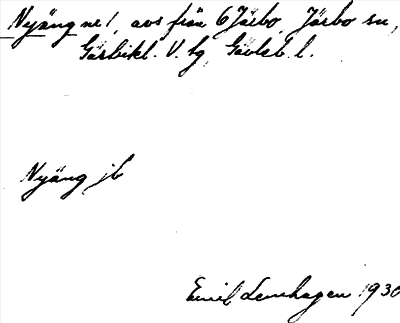 Nyäng nr 1, avs från 6 Järbo, Järbo sn,
Gästrikl. V. tg, Gävleb. l.
Nyäng jb
Emil Lenhagen 1930